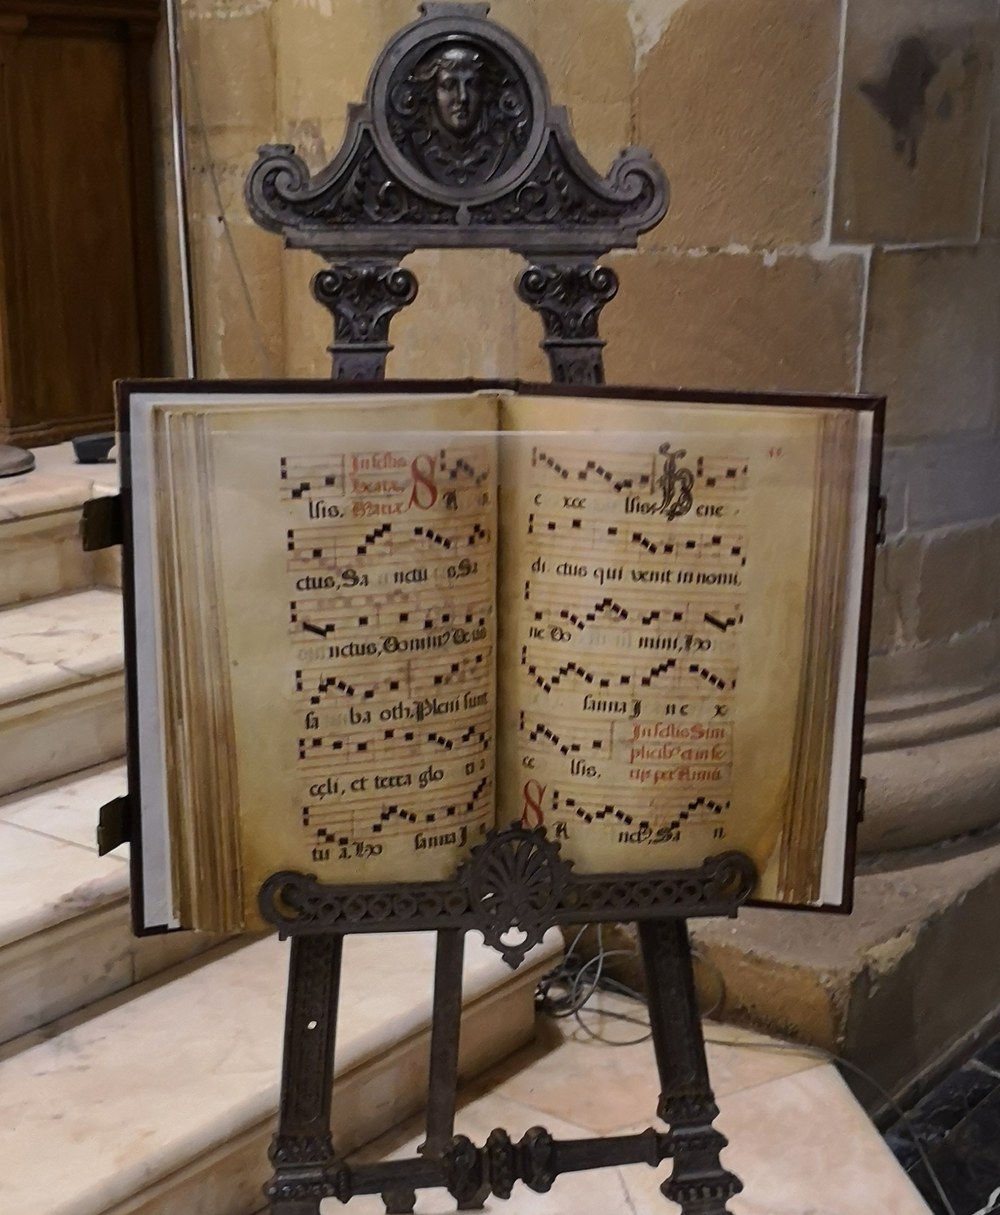 lsis. In festis
Beatæ
Mariæ. SA
ctus, Sa nctu s, Sa
nctus, Domin⁹ Deus
sa ba oth, Pleni sunt
cęli, et terra glo ri a
tu a. Ho sanna I n
e xce lsis. Bene
di ctus qui venit in nomi,
ne Do mini, Ho
sanna I n e x
ce lsis. In festis Sim
plicib⁹ et in fe
rijs per Annū
SA nct⁹, Sa n